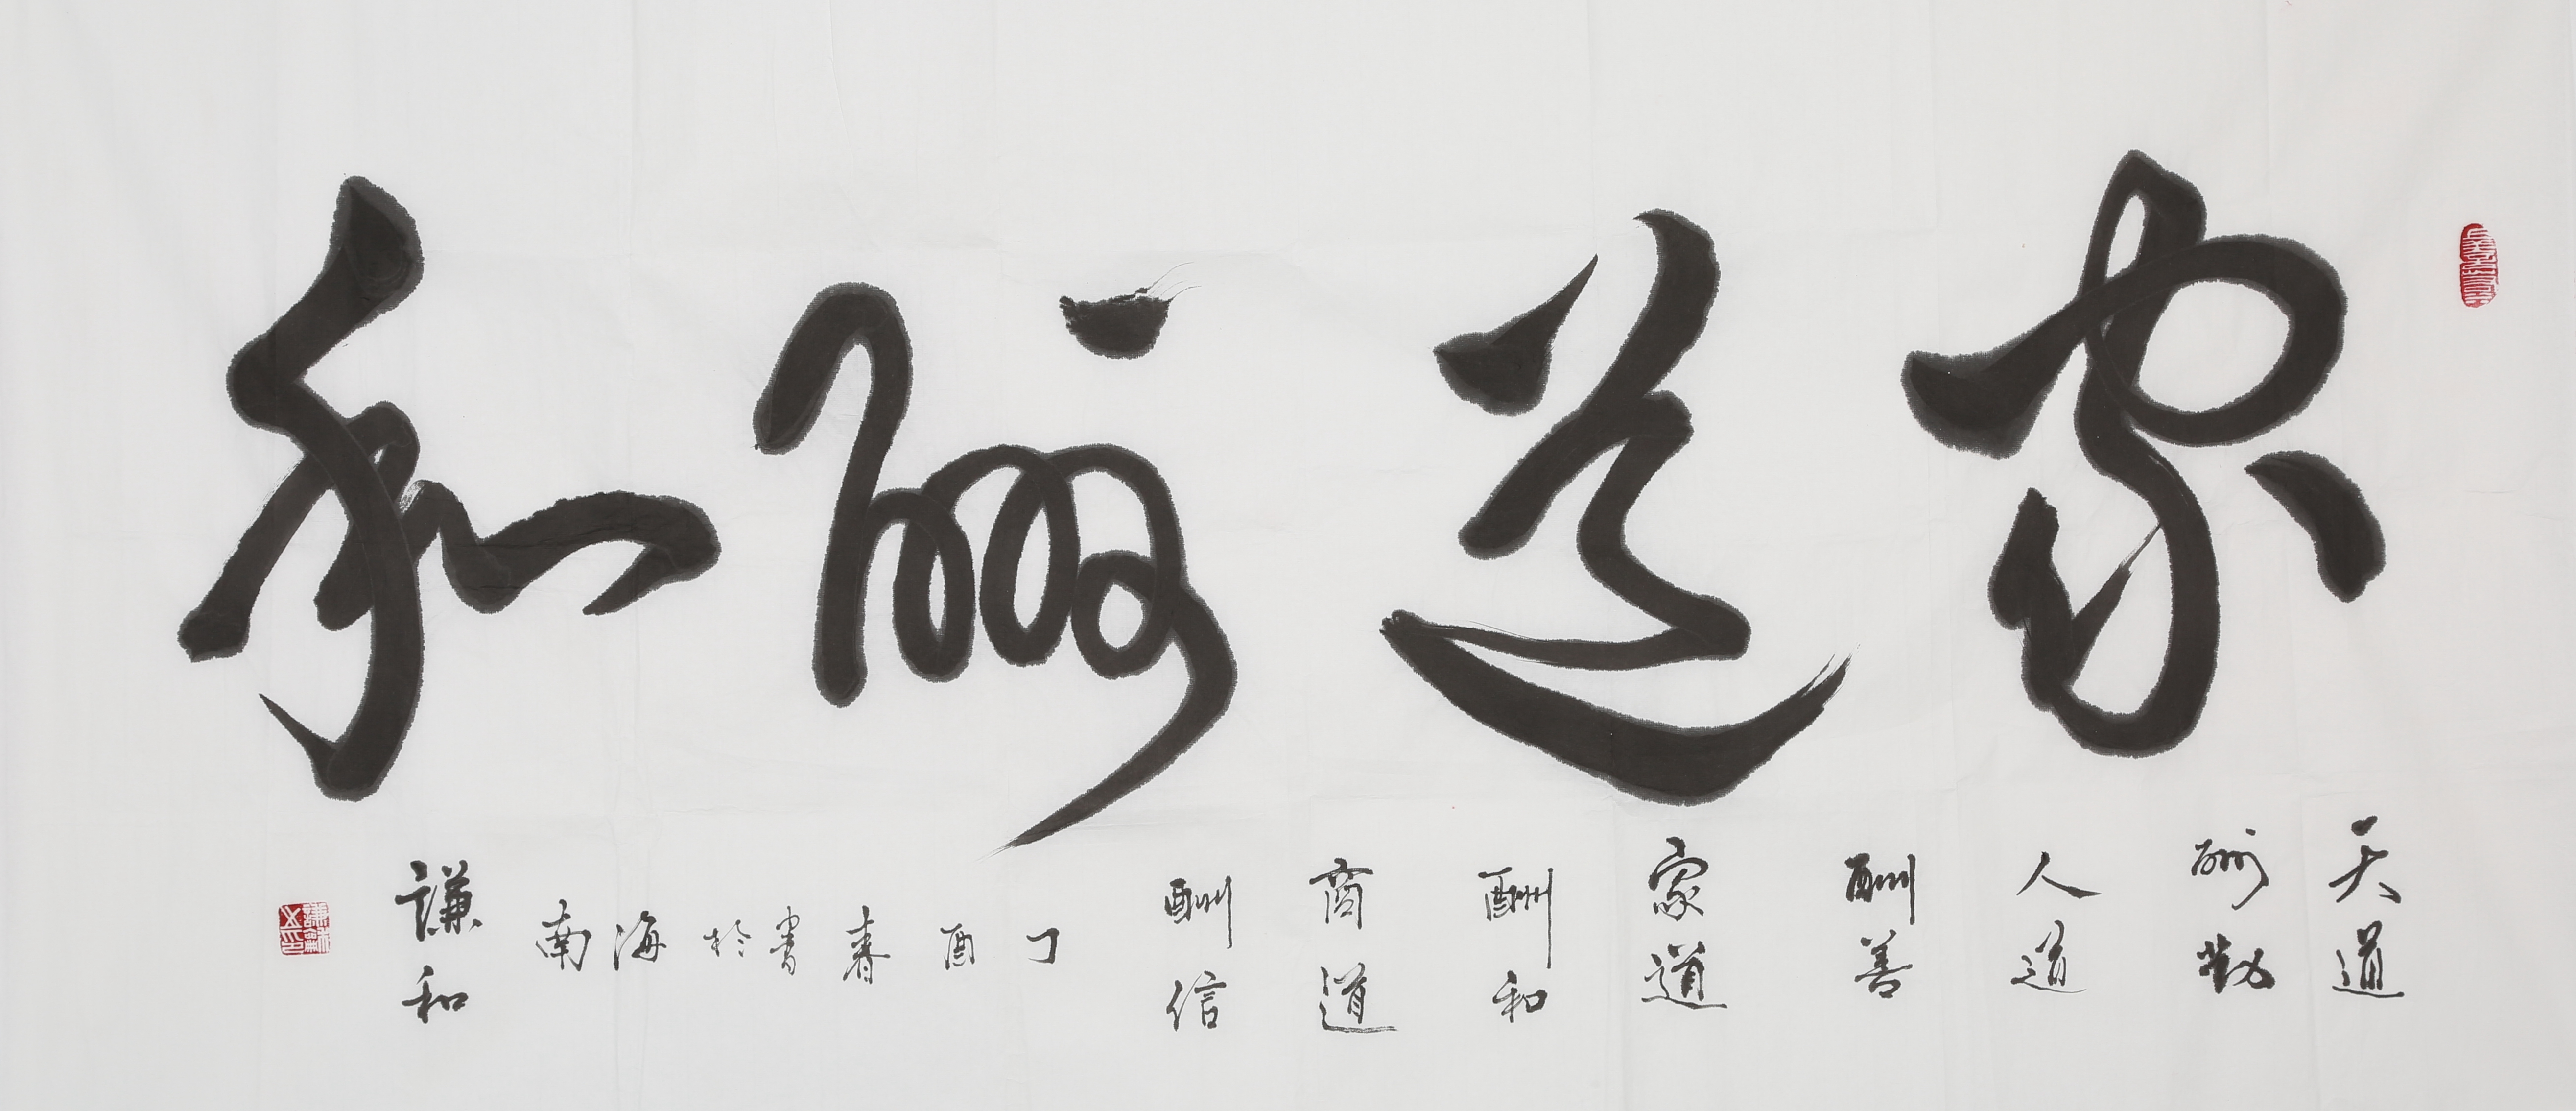 家道酬和
天道
酬勤
人道
酬善
家道
酬和
商道
酬信
丁酉春書於海南
謙和